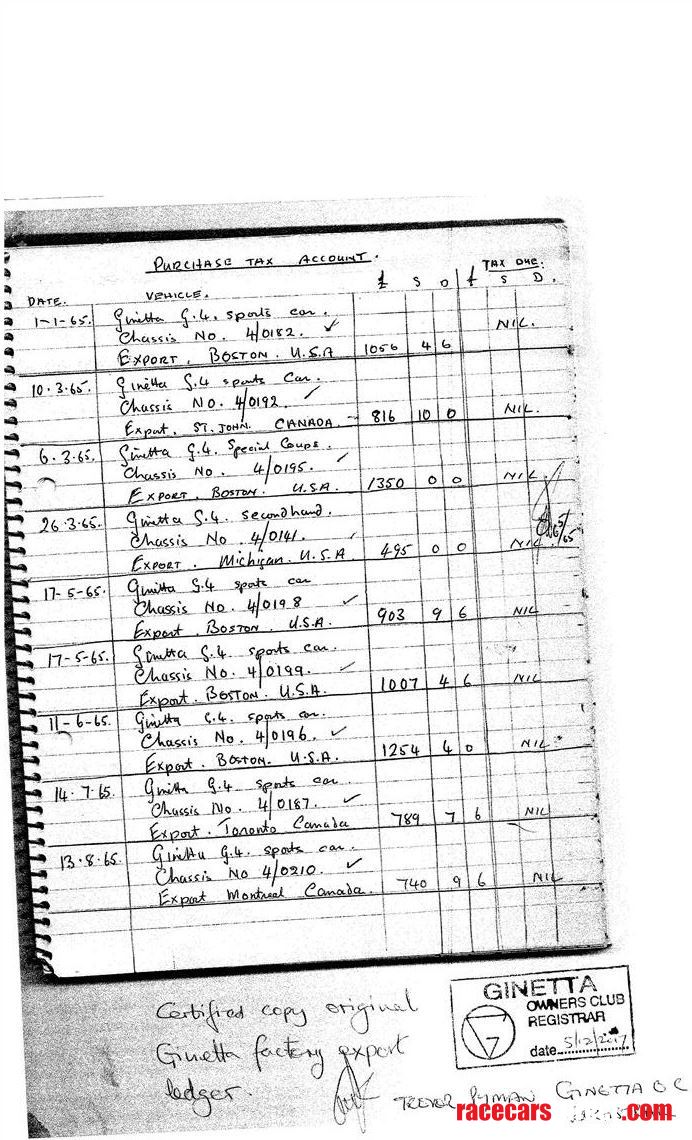 PURCHASE TAX ACCOUNT.
DATE. VEHICLE. £ S D £ TAX DUE. S D.
1-1-65. Ginetta G.4. sports car.
Chassis No. 4/0182. ✓ NIL.
EXPORT. BOSTON. U.S.A 1056 4 6
10.3.65. Ginetta G.4 sports Car.
Chassis NO. 4/0192. ✓
Export. ST. JOHN. CANADA. 816 10 0 NIL.
6.3.65. Ginetta G.4. Special Coupe.
Chassis No. 4/0195. ✓
EXPORT. BOSTON. U.S.A. 1350 0 0 NIL.
26.3.65. Ginetta G.4. secondhand.
Chassis NO. 4/0141.
EXPORT. Michigan. U.S.A 495 0 0 NIL.
17-5-65. Ginetta G.4 sports car
Chassis No. 4/0198 ✓
Export. BOSTON. U.S.A. 903 9 6 NIL
17-5-65. Ginetta G.4. sports car.
Chassis NO. 4/0199. ✓
Export. BOSTON. U.S.A. 1007 4 6 NIL
11-6-65. Ginetta G.4. sports car.
Chassis No. 4/0196. ✓
Export. Boston. U.S.A. 1254 4 0 NIL
14.7.65. Ginetta G.4 sports car.
Chassis No. 4/0187. ✓
Export. Toronto Canada 789 7 6 NIL
13.8.65. Ginetta G.4. sports car.
Chassis No 4/0210. ✓
Export Montreal Canada. 740 9 6 NIL
GINETTA
OWNERS CLUB
REGISTRAR
date 5/12/2017
Certified copy original
Ginetta factory export
ledger.
TREVOR PYMAN GINETTA O C
racecars .com